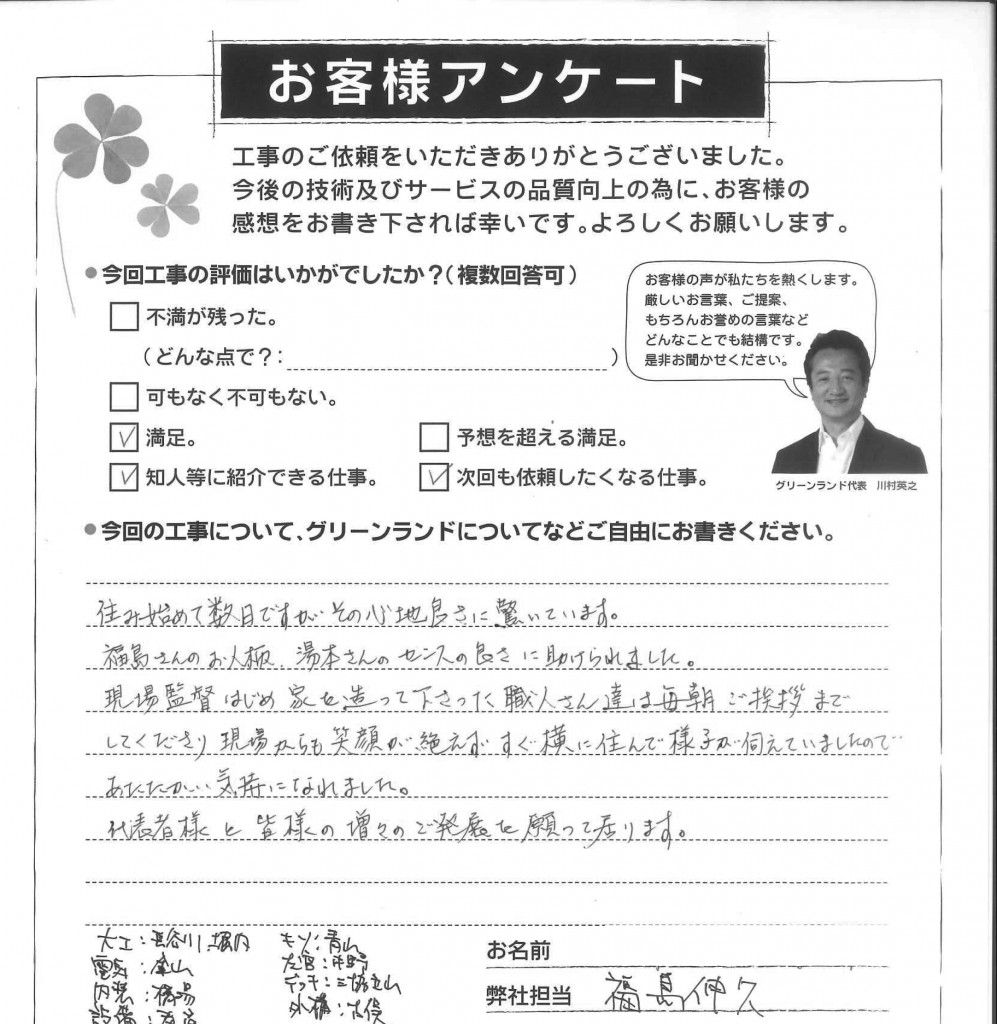 お客様アンケート
工事のご依頼をいただきありがとうございました。
今後の技術及びサービスの品質向上の為に、お客様の
感想をお書き下されば幸いです。よろしくお願いします。
●今回工事の評価はいかがでしたか？（複数回答可）
不満が残った。
（どんな点で？：　）
可もなく不可もない。
満足。
予想を超える満足。
知人等に紹介できる仕事。
次回も依頼したくなる仕事。
お客様の声が私たちを熱くします。
厳しいお言葉、ご提案、
もちろんお誉めの言葉など
どんなことでも結構です。
是非お聞かせください。
グリーンランド代表　川村英之
●今回の工事について、グリーンランドについてなどご自由にお書きください。
住み始めて数日ですが その心地良さに驚いています。
福島さんのお人柄、湯本さんのセンスの良さに助けられました。
現場監督はじめ 家を造って下さった職人さん達は毎朝ご挨拶まで
してくださり 現場からも笑顔が絶えず すぐ横に住んで様子が伺えていましたので
あたたかい気持になれました。
代表者様と皆様の増々のご発展を願って居ります。
大工：長谷川 堀内
キソ：青山
電気：
左官：
内装：
デッキ：三協立山
設備：
外構：
お名前
弊社担当　福島伸久